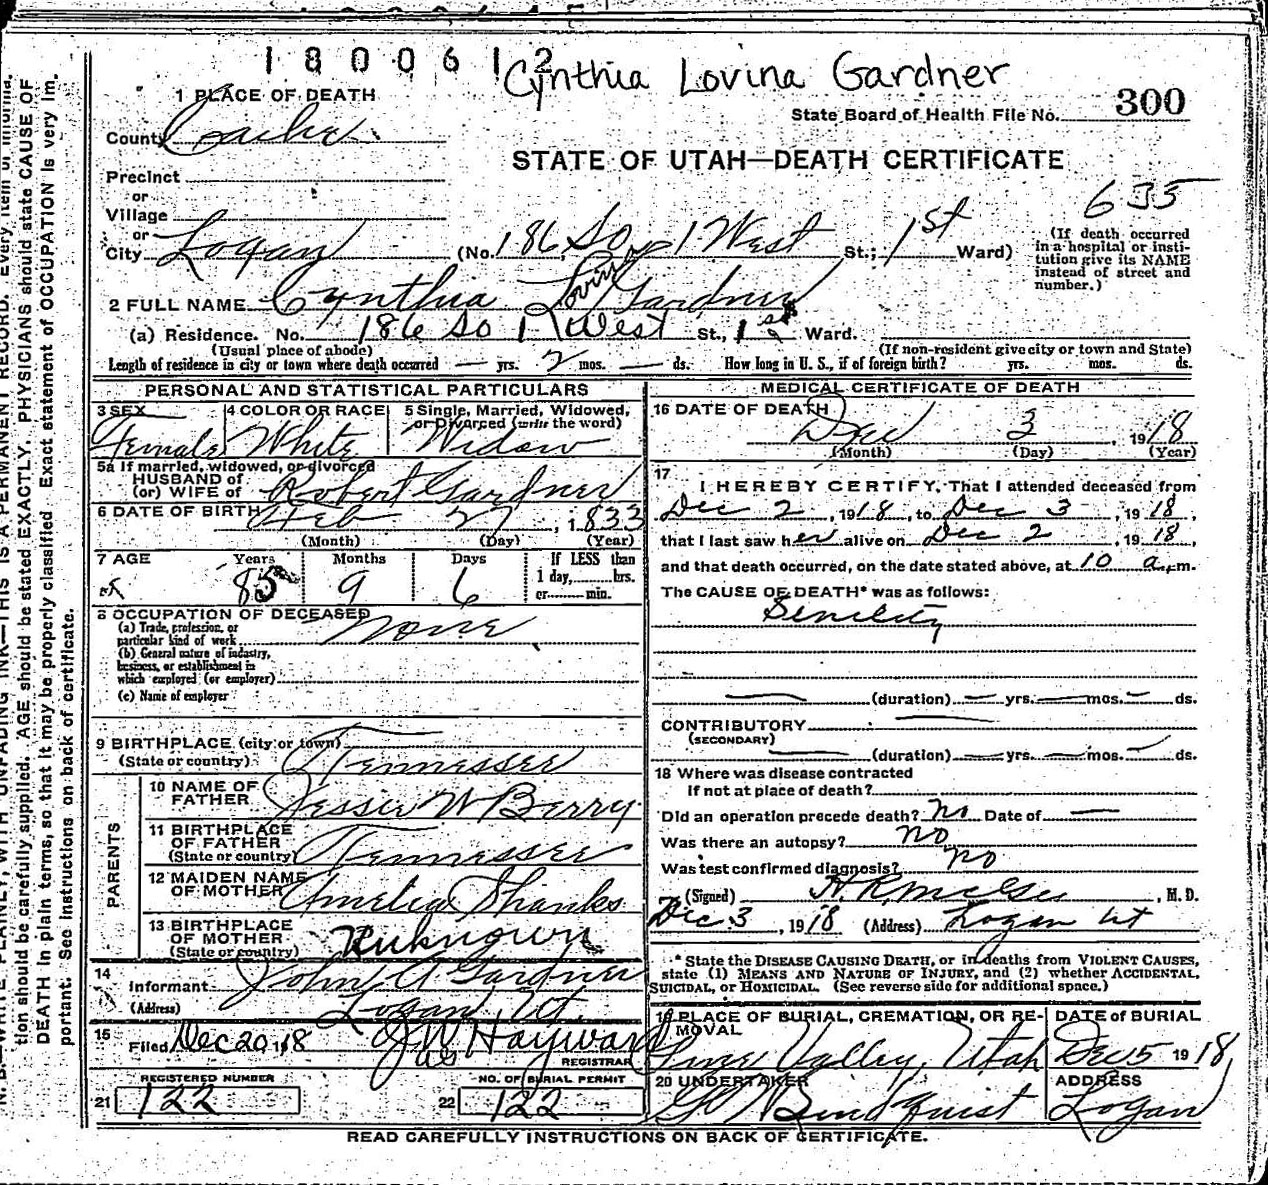 1800612
Cynthia Lovina Gardner
1 PLACE OF DEATH
State Board of Health File No. 300
County Cache
STATE OF UTAH—DEATH CERTIFICATE
Precinct
or
Village
or
635
City Logan (No. 186 So 1 West St.; 1st Ward)
(If death occurred in a hospital or institution give its NAME instead of street and number.)
2 FULL NAME Cynthia Lovina Gardner
(a) Residence. No. 186 So 1 West St., 1st Ward.
(Usual place of abode) (If non-resident give city or town and State)
Length of residence in city or town where death occurred — yrs. 2 mos. — ds. How long in U. S., if of foreign birth? yrs. mos. ds.
PERSONAL AND STATISTICAL PARTICULARS
3 SEX Female
4 COLOR OR RACE White
5 Single, Married, Widowed, or Divorced (write the word) Widow
5a If married, widowed, or divorced
HUSBAND of
(or) WIFE of Robert Gardner
6 DATE OF BIRTH Feb 27, 1833
(Month) (Day) (Year)
7 AGE Years Months Days If LESS than
85 9 6 1 day, hrs.
or min.
8 OCCUPATION OF DECEASED
(a) Trade, profession, or
particular kind of work None
(b) General nature of industry,
business, or establishment in
which employed (or employer)
(c) Name of employer
9 BIRTHPLACE (city or town)
(State or country) Tennessee
PARENTS
10 NAME OF FATHER Jesse W Berry
11 BIRTHPLACE OF FATHER
(State or country) Tennessee
12 MAIDEN NAME OF MOTHER Amelia Shanks
13 BIRTHPLACE OF MOTHER
(State or country) Unknown
14
Informant John A Gardner
(Address) Logan, Ut.
15
Filed Dec 20 1918 J W Hayward
REGISTRAR
REGISTERED NUMBER NO. OF BURIAL PERMIT
21 122 22 122
MEDICAL CERTIFICATE OF DEATH
16 DATE OF DEATH
Dec 3, 1918
(Month) (Day) (Year)
17
I HEREBY CERTIFY, That I attended deceased from
Dec 2, 1918, to Dec 3, 1918,
that I last saw her alive on Dec 2, 1918,
and that death occurred, on the date stated above, at 10 a.m.
The CAUSE OF DEATH* was as follows:
Senility
(duration) — yrs. — mos. — ds.
CONTRIBUTORY —
(SECONDARY)
(duration) — yrs. — mos. — ds.
18 Where was disease contracted
If not at place of death?
Did an operation precede death? no Date of —
Was there an autopsy? no
Was test confirmed diagnosis? no
(Signed) , M. D.
Dec 3, 1918 (Address) Logan Ut
* State the DISEASE CAUSING DEATH, or in deaths from VIOLENT CAUSES,
state (1) MEANS AND NATURE OF INJURY, and (2) whether ACCIDENTAL,
SUICIDAL, or HOMICIDAL. (See reverse side for additional space.)
19 PLACE OF BURIAL, CREMATION, OR REMOVAL DATE of BURIAL
Pine Valley, Utah Dec 5 1918,
20 UNDERTAKER ADDRESS
Lindquist Logan
READ CAREFULLY INSTRUCTIONS ON BACK OF CERTIFICATE.
N. B.—WRITE PLAINLY, WITH UNFADING INK—THIS IS A PERMANENT RECORD. Every item of informa-
tion should be carefully supplied. AGE should be stated EXACTLY. PHYSICIANS should state CAUSE OF
DEATH in plain terms, so that it may be properly classified. Exact statement of OCCUPATION is very im-
portant. See instructions on back of certificate.